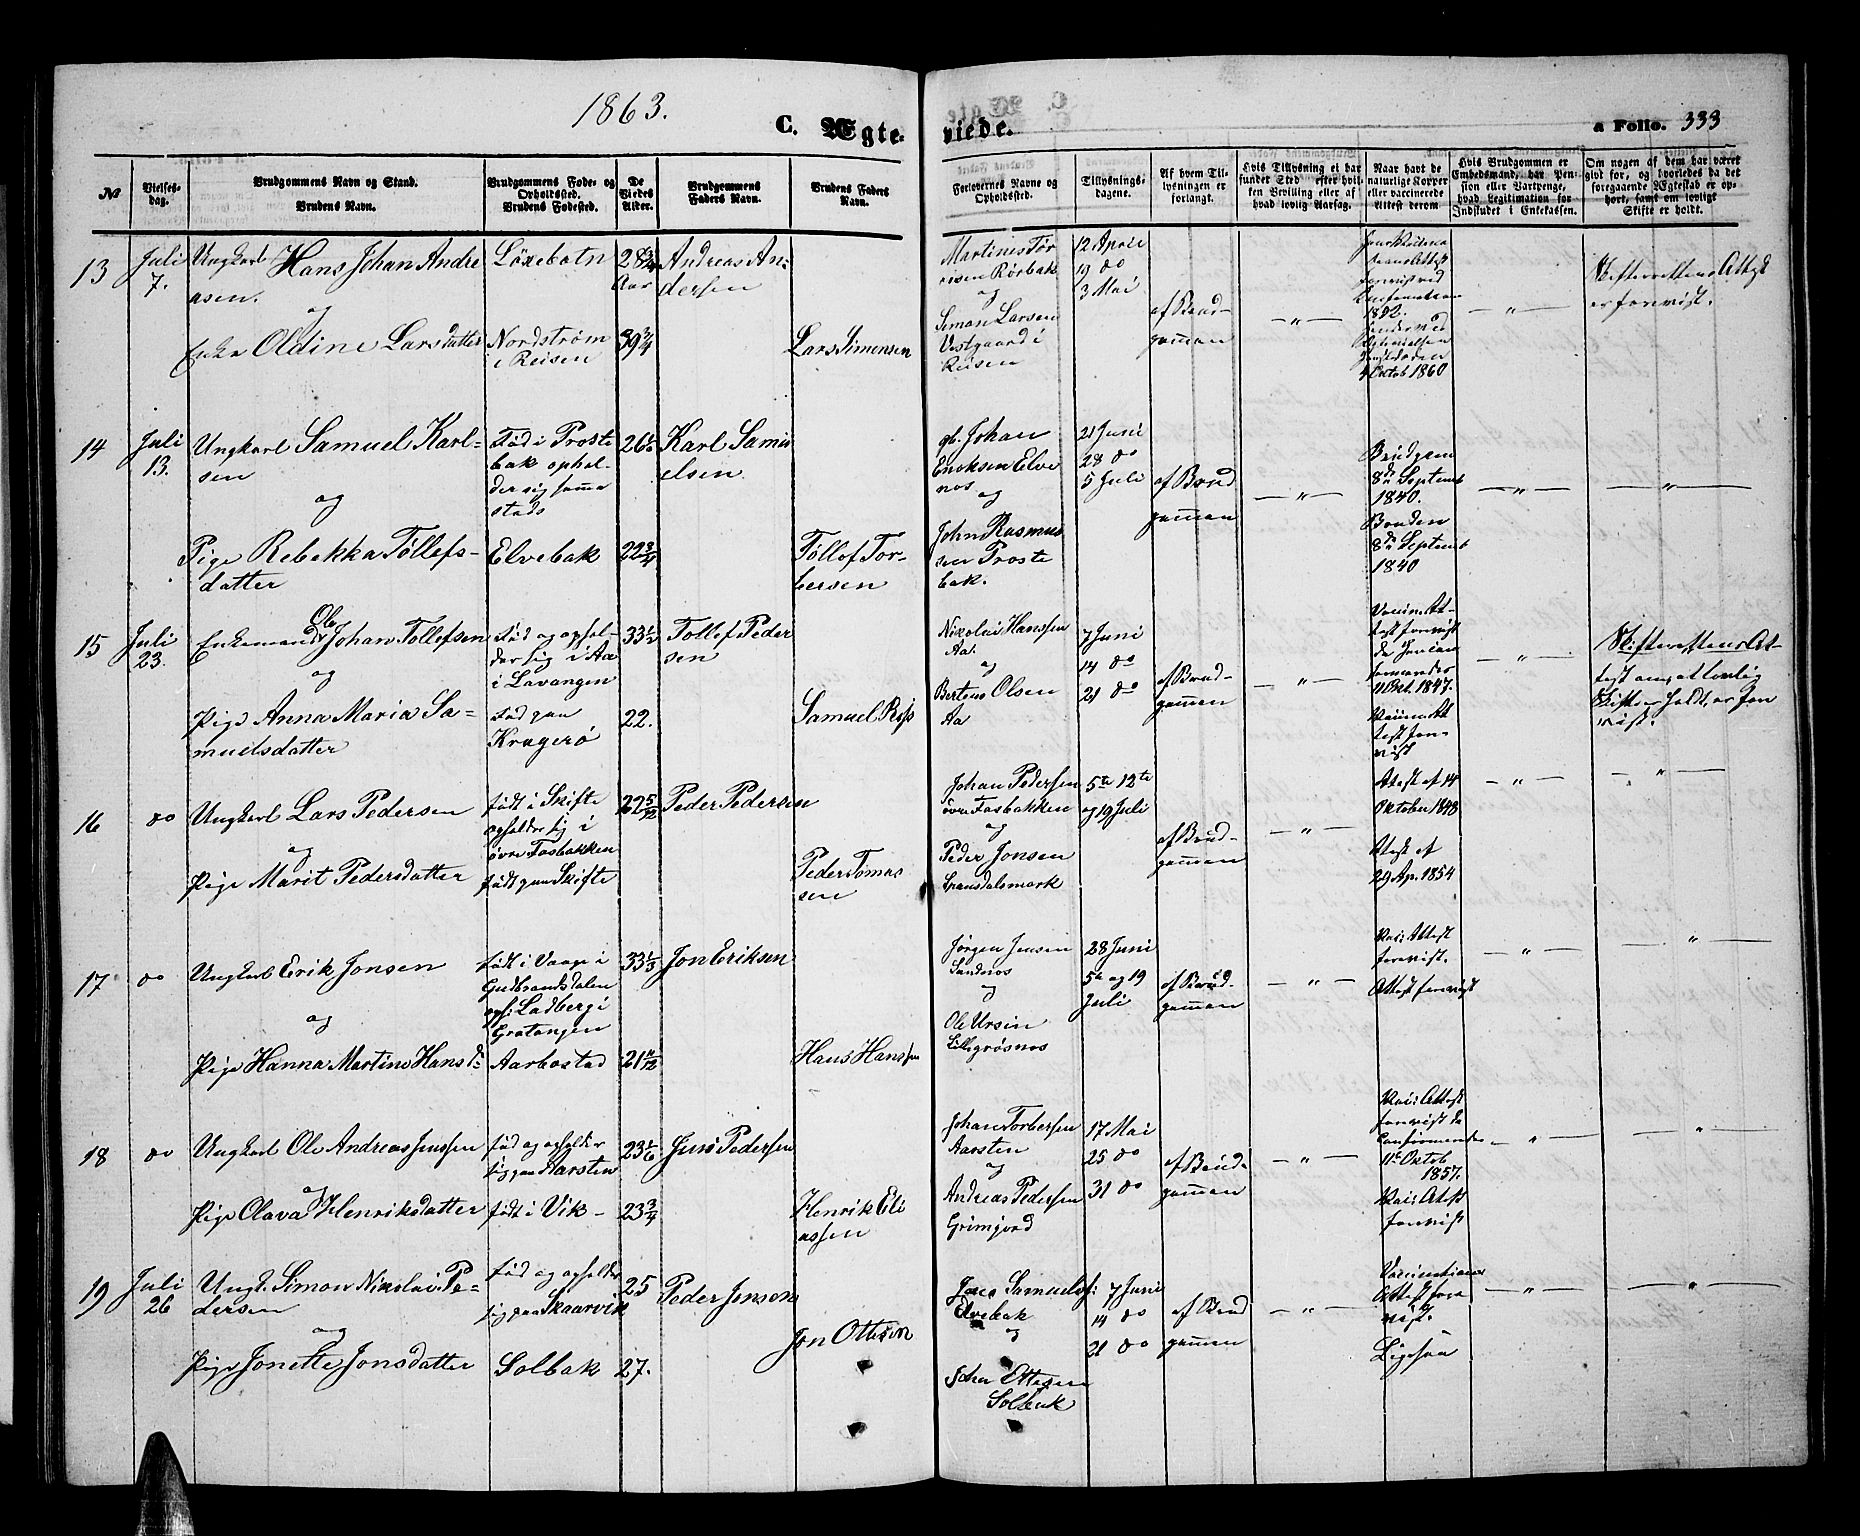 1863.
C. Ægte-
viede.
a Folio. 333
No
Vielses-
dag.
Brudgommens Navn og Stand.
Brudens Navn.
Brudgommens Føde- og
Opholdssted.
Brudens Fødested.
De
Viedes
Alder.
Brudgommens
Faders Navn.
Brudens Faders
Navn.
Forlovernes Navne og
Opholdssted.
Tillysnings-
dagene.
Af hvem Til-
lysningen er
forlangt.
Hvis Tillysning ei har
funder Sted, efter hvil-
ken Bevilling eller af
hvad lovlig Aarsag.
Naar havt de
naturlige Kopper
eller vaccinerede
Attest derom
Hvis Brudgommen er
Embedsmand, har Pen-
sion eller Vartpenge,
hvad Legitimation for
Indskudet i Enkekassen.
Om nogen af dem har været
givt før, og hvorledes da det
foregaaende Ægteskab er op-
hørt, samt om lovligt
Skifte er holdt.
13
Juli
7.
Ungkarl Hans Johan Andre
asen.
og
Enke Oldine Larsdatter
Løxebotn
Nordstrøm
i Reisen
28 3/4
Aar
39 3/4
Andreas An-
dersen
Lars Simensen
Martinis Tør
risen Rørbak
og
Simon Larsen
Vestgaard i
Reisen
12 April
19 do
3 Mai
af Brud-
gommen
— " —
1842.
4 Oktob 1860
— " —
Skifterettens Attest
er forevist.
14
Juli
13.
Ungkarl Samuel Karl-
sen
og
Pige Rebekka Tøllefs-
datter
Fød i Proste
bak ophol-
der sig samme
steds
Elvebak
26 1/6
22 3/4
Karl Samu
elsen
Tøllef Tor-
bersen
gb. Johan
Enoksen Elve
nes
og
John Rasmus
sen Proste
bak.
21 Juni
28 do
5 Juli
af Brud
gommen
— " —
Brudgom
8de Septemb
1840.
Bruden
8de Septemb
1840
— " —
— " —
15
Juli
23.
Enkemand Ole Johan Tollefsen
og
Pige Anna Maria Sa-
muelsdatter
Fød og ophol-
der sig i Aa
i Lavangen
Fød paa
Kragerø
33 1/2
22.
Tollef Peder
sen
Samuel Rist
Nikolai Hanssen
Aa.
og
Bertens Olsen
Aa
7 Juni
14 do
21 do
af Brud-
gommen
— " —
Vaccine At-
test forevist
1847.
Vaccine At
test fore-
vist
— " —
Skifterettens At-
test om, at lovlig
Skifte er holdt, er fore
vist.
16
do
Ungkarl Lars Pedersen
og
Pige Marit Pedersdatter
født i Skifte
opholder sig i
øvre Fosbakken
født paa Skifte
22 5/12
Peder Pedersen
Peder Tomas
sen
Johan Pedersen
øvre Fosbakken
og
Peder Jonsen
Gransdalsmark
5te 12te
og 19 Juli
af Brud-
gommen
— " —
Attest af 14
Oktober 1848
Attest af
29 Ap. 1854
— " —
— " —
17
do
Ungkarl Erik Jonsen
og
Pige Hanna Martine Hansd:
født i Vaage i
Gudbrandsdalen
oph: Ladberg i
Gratangen
Aarbostad
33 1/3
21 11/12
Jon Eriksen
Hans Hanssen
Jørgen Jensen
Sandnes
og
Ole Ursin
Lillegrøsnes
28 Juni
5te og 19
Juli
af Brud-
gommen
— " —
Vac: Attest
forevist.
Attest forevist
— " —
— " —
18
do
Ungkarl Ole Andreas Jenssen
og
Pige Olava Henriksdatter
fød og opholder
sig paa Aarsten
født i Vik -
23 1/6
23 3/4
Jens Pedersen
Henrik Eli
assen
Johan Torbersen
Aarsten
og
Andreas Pedersen
Grimjord
17 Mai
25 do
31 do
af Brud-
gommen
— " —
Vac: Attest
forevist da
Confirmerede
11te Oktob
1857.
Vac: Attest
forevist
— " —
— " —
19
Juli
26
Ungk. Simon Nikolai Pe-
dersen
og
Pige Jonette Jonsdatter
Fød og opholder
sig paa Skaarvik
Solbak
25
27.
Peder Jensen
Jon Ottesen
Jens Samuels:
Elvebak
og
John Ottesen
Solbak
7 Juni
14 do
21 do
af Brud
gommen
— " —
Vaccinations
Attest fore
vist.
Ligesaa
— " —
— " —